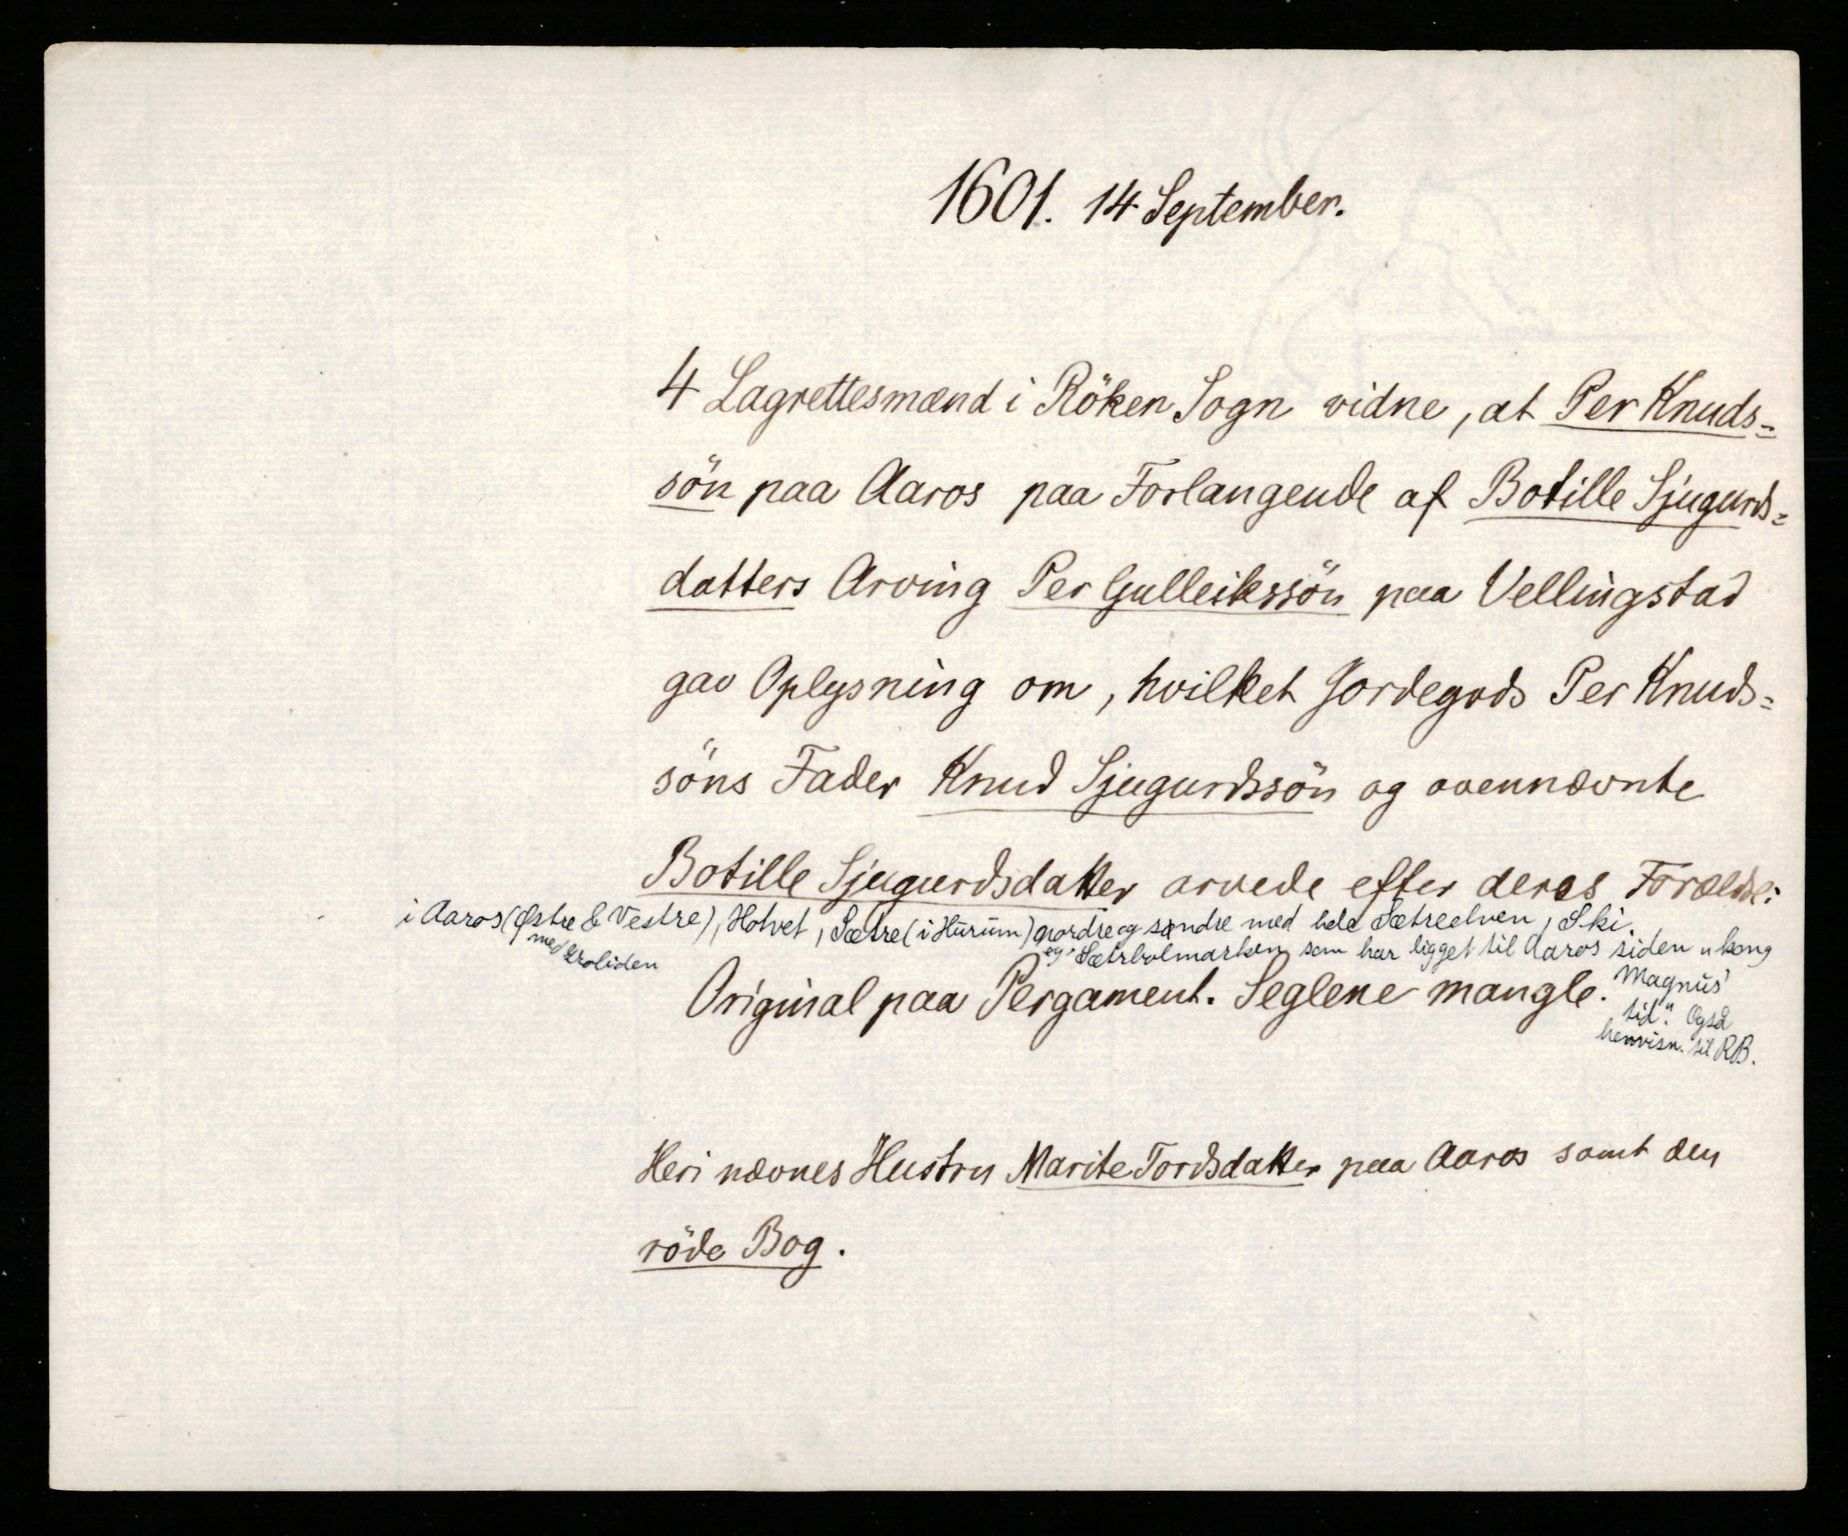 1601. 14 September.
4 Lagrettesmænd i Röken Sogn vidne, at Per Knuds=
sön paa Aaros paa Forlangende af Botille Sjugurds=
datters Arving Per Gulleikssön paa Vellingstad
gav Oplysning om, hvilket Jordegods Per Knuds=
söns Fader Knud Sjugurdssön og ovennævnte
Botille Sjugurdsdatter arvede efter deres Forældre:
i Aaros (Østre & Vestre), Hotvet, Sætre (i Hurum) nordre og søndre med hele Sætreelven, Ski.
med Kroliden
og Sætrholmarken som har ligget til Aaros siden "kong
Magnus'
tid". Også
henvisn. til RB.
Original paa Pergament. Seglene mangle.
Heri nævnes Hustru Marite Tordsdatter paa Aaros samt den
röde Bog.